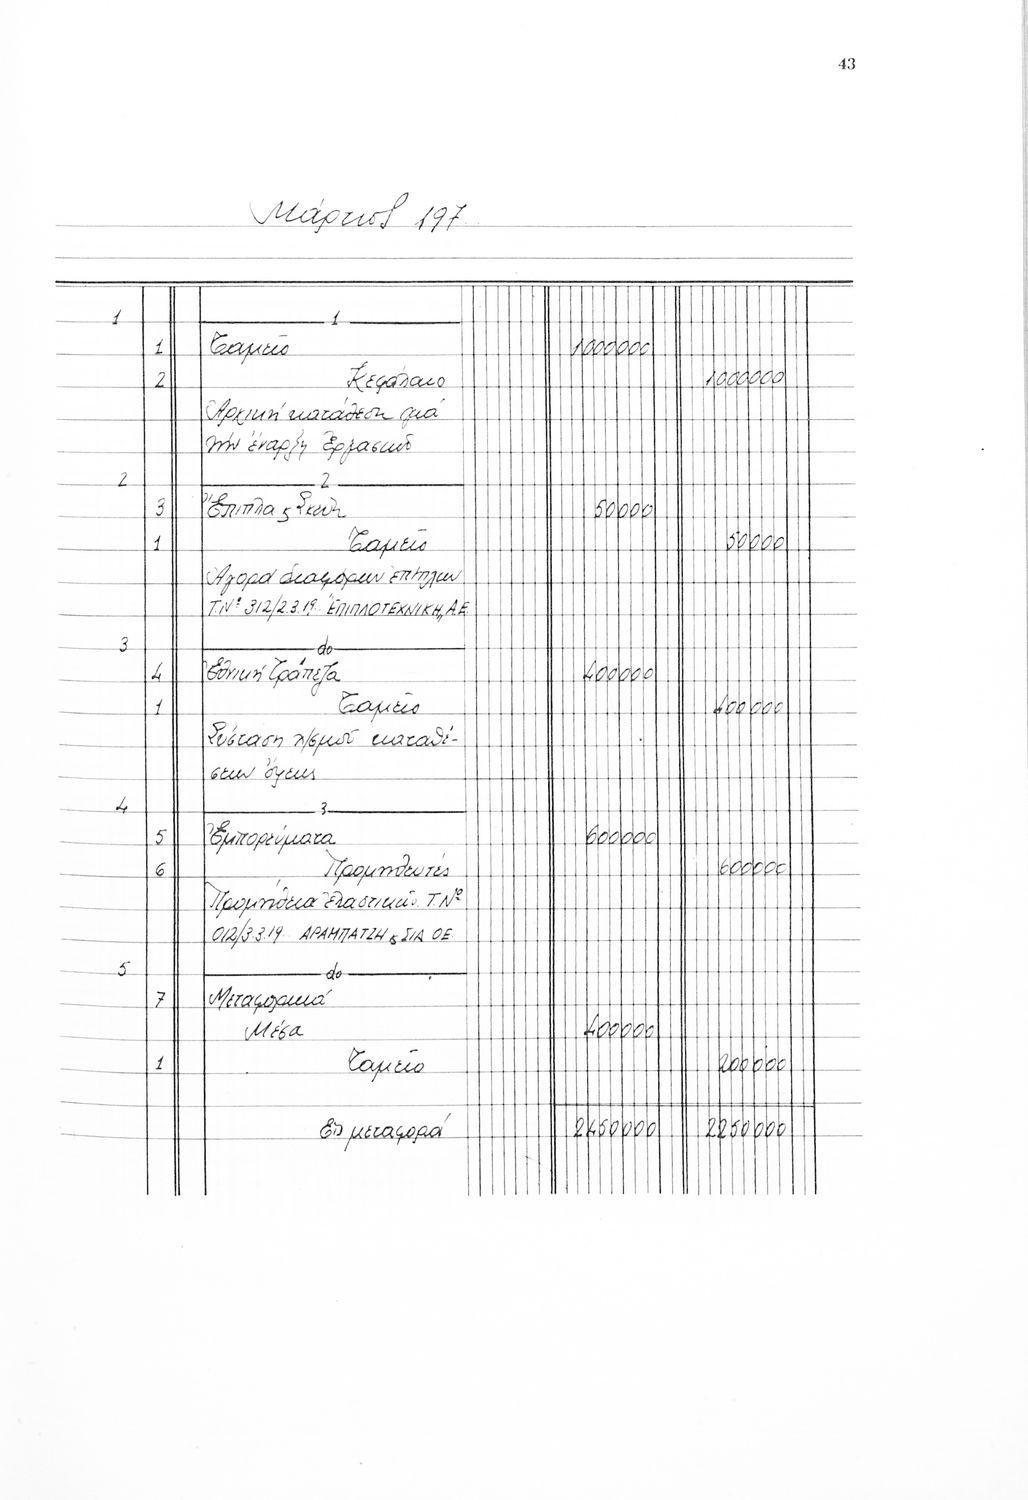 43
Μάρτιος 197
1 1
1 Ταμεῖο 1000000
2 Κεφάλαιο 1000000
Ἀρχική κατάθεση γιά
τήν ἔναρξη ἐργασιῶν
2 2
3 Ἔπιπλα ϗ Σκεύη 50000
1 Ταμεῖο 50000
Ἀγορά διαφόρων ἐπίπλων
Τ.Νº 312/2.3.19.. "ΕΠΙΠΛΟΤΕΧΝΙΚΗ„ Α.Ε.
3 do
4 Ἐθνική Τράπεζα 400000
1 Ταμεῖο 400000
Σύσταση λ/σμοῦ καταθέ-
σεων ὄψεως
4 3
5 Ἐμπορεύματα 600000
6 Προμηθευτές 600000
Προμήθεια ἐλαστικῶν Τ.Νº
012/3.3.19.. ΑΡΑΜΠΑΤΖΗ ϗ ΣΙΑ ΟΕ
5 do
7 Μεταφορικά
Μέσα 400000
1 Ταμεῖο 200000
Εἰς μεταφορά 2450000 2250000